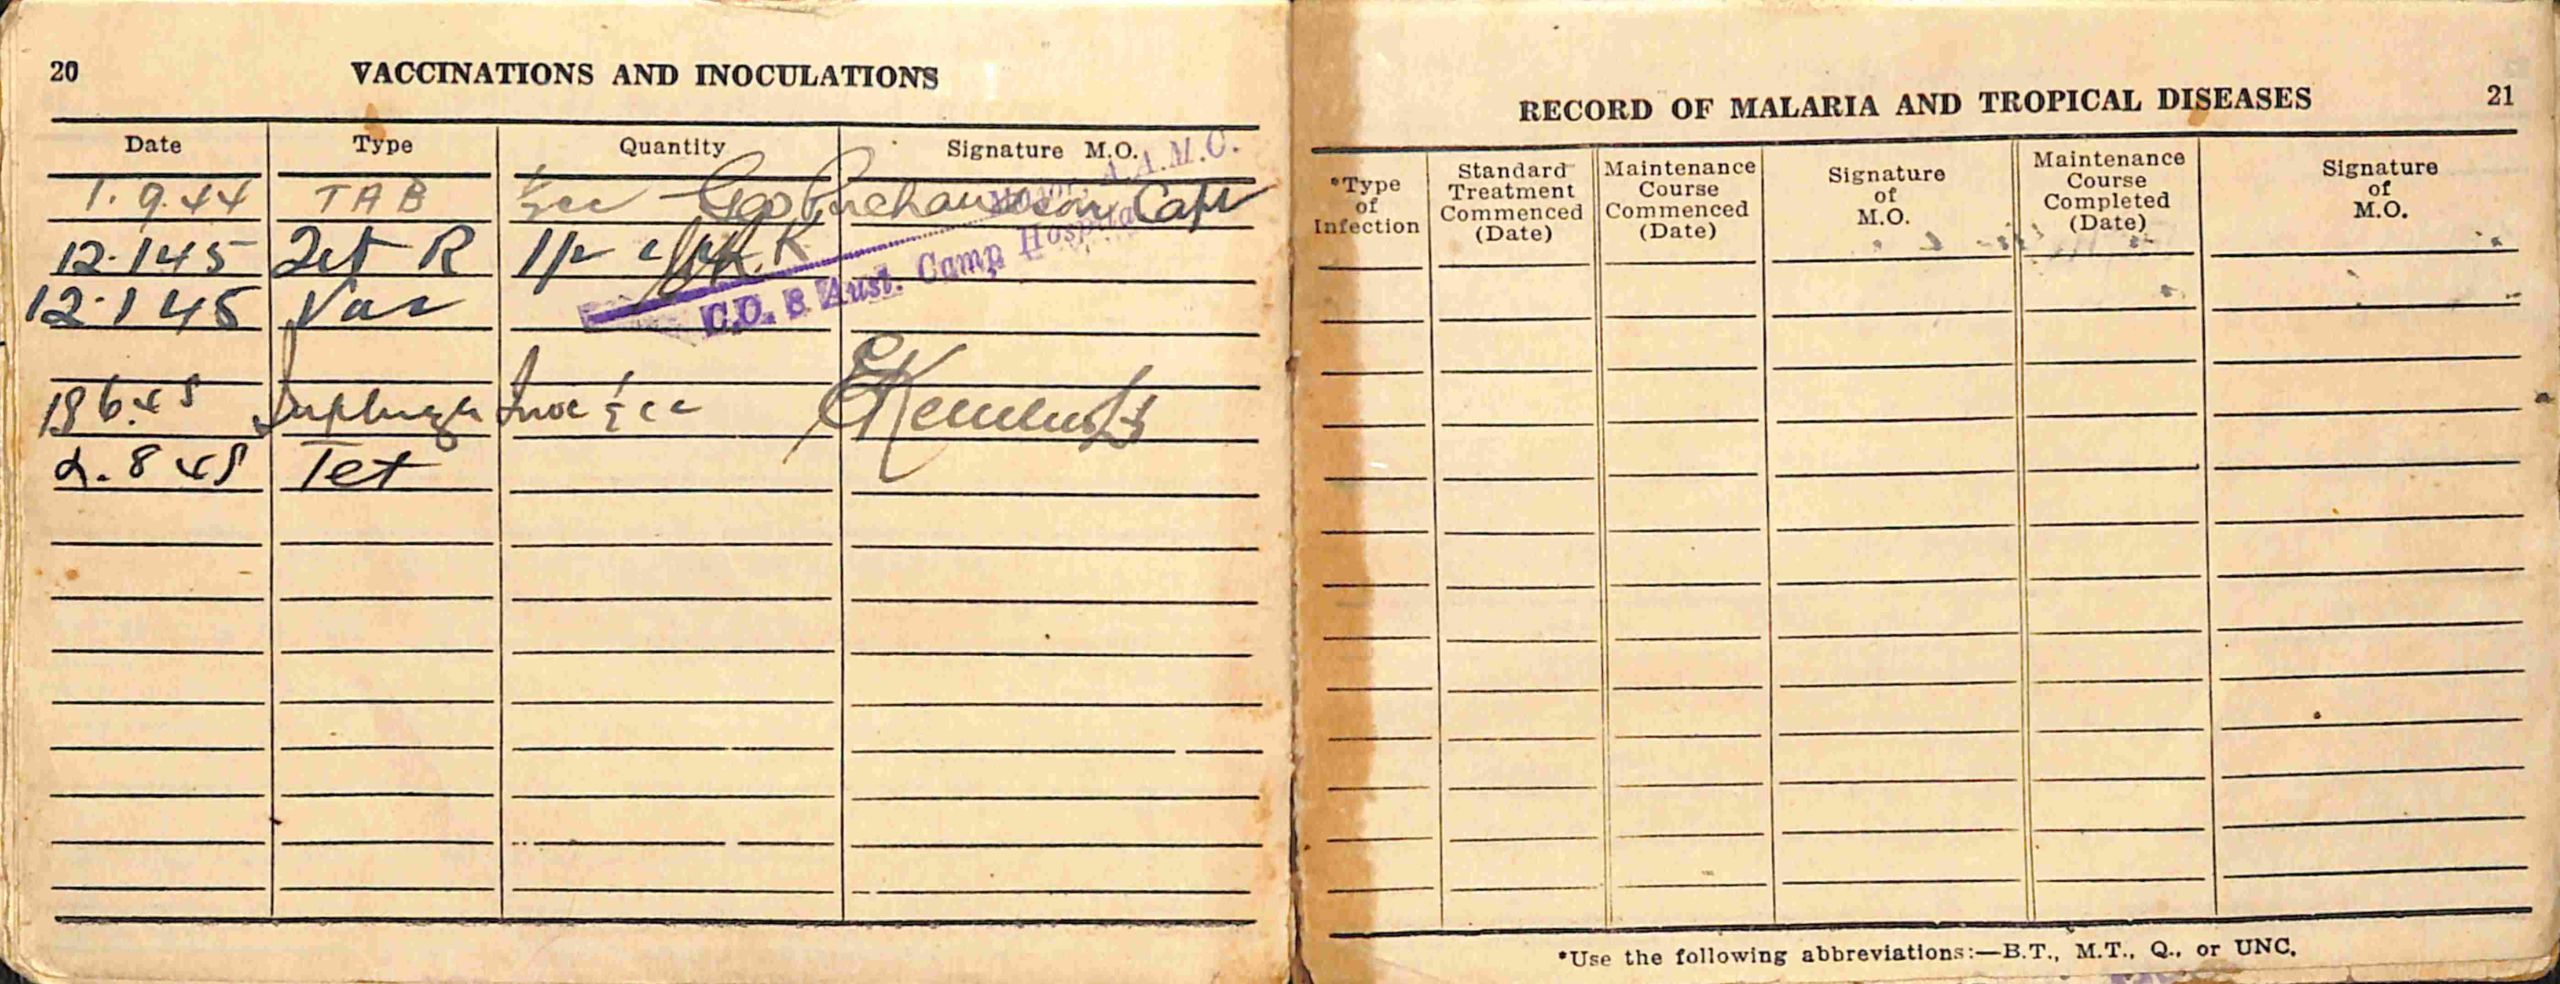 20
VACCINATIONS AND INOCULATIONS
Date Type Quantity Signature M.O.
1.9.44 TAB ½cc Geo Capt
Major, A.A.M.C.
12.1 45 Tet R 1/2 c
12.1 45 Vac
C.O. 8 Aust. Camp Hospital
6.45 Inoc cc
2.8 45 Tet
RECORD OF MALARIA AND TROPICAL DISEASES
21
*Type of Infection
Standard Treatment Commenced (Date)
Maintenance Course Commenced (Date)
Signature of M.O.
Maintenance Course Completed (Date)
Signature of M.O.
*Use the following abbreviations:—B.T., M.T., Q., or UNC.